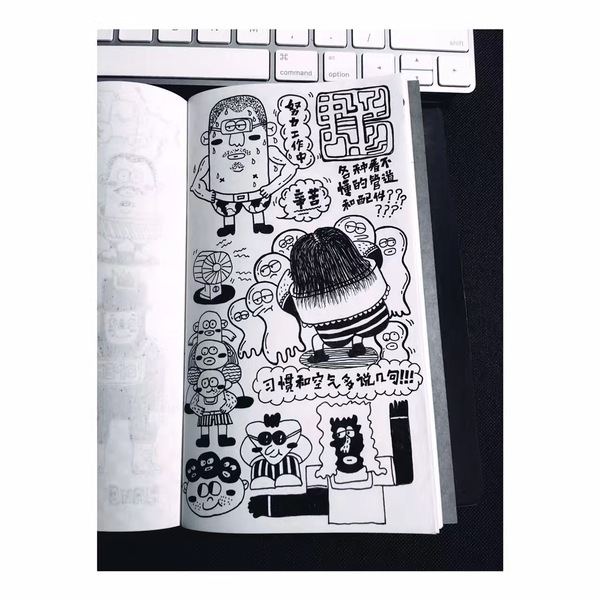 shift
⌘
command
alt
option
努力工作中
辛苦
各种看不
懂的管道
和配件??
???
习惯和空气多说几句!!!